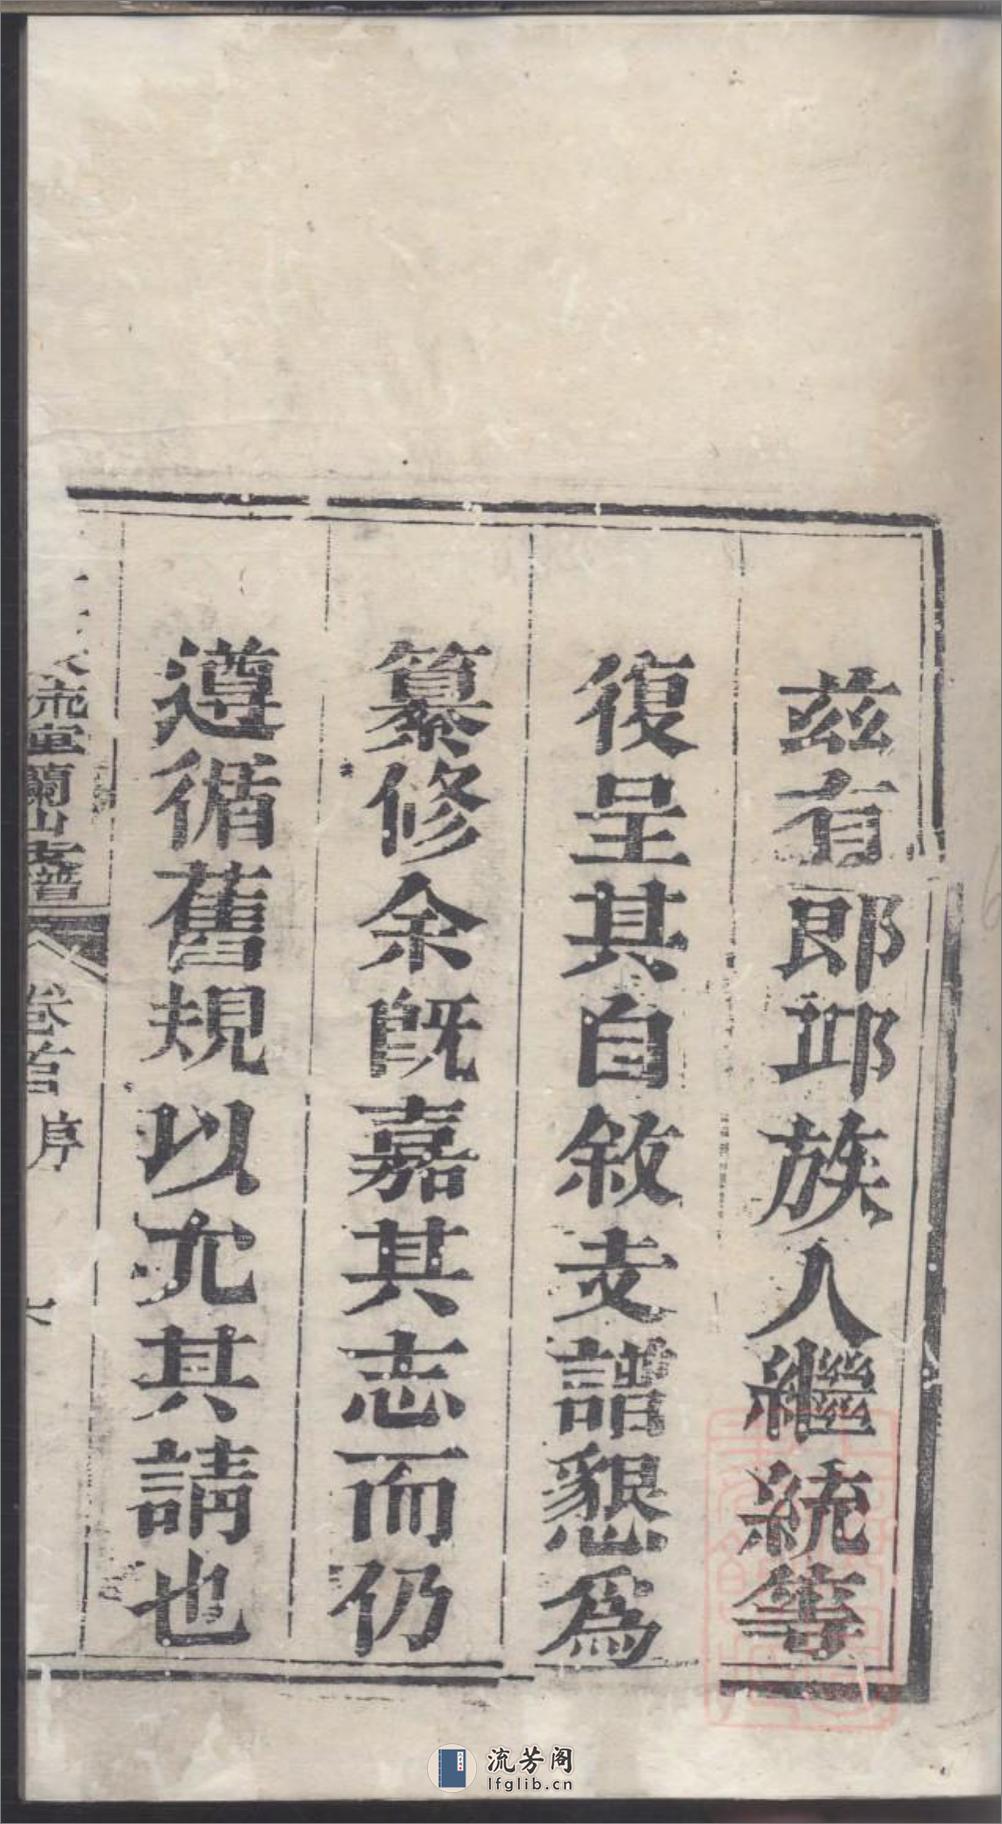 茲有郎邱族人繼統等
復呈其自敘支譜懇爲
纂修余旣嘉其志而仍
遵循舊規以允其請也
流宣蘭山支譜
卷首
序
流芳阁
lfglib.cn